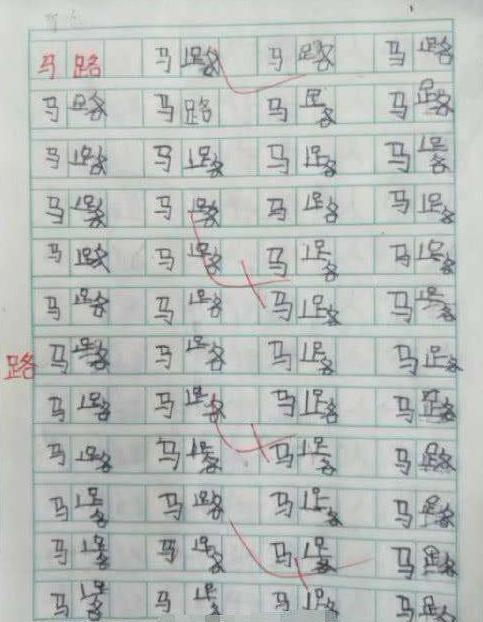 马路 马路 马路 马路
马路 马路 马路 马路
马路 马路 马路 马路
马路 马路 马路 马路
马路 马路 马路 马路
马路 马路 马路 马路
路 马路 马路 马路 马路
马路 马路 马路 马路
马路 马路 马路 马路
马路 马路 马路 马路
马路 马路 马路 马路
马路 马路 马路 马路